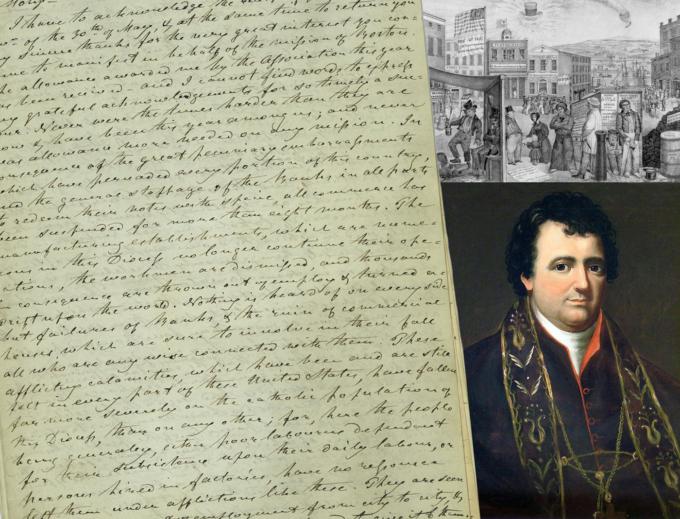 I have to acknowledge the
of the 30th of May, & at the same time to return you
my sincere thanks for the very great interest you con-
to manifest in behalf of the mission of Boston.
The allowance awarded me by the Association this year
has been received and I cannot find words to express
my grateful acknowledgements for so timely a suc-
cour. Never were the times harder than they are
now & have been this year among us; and never
was allowance more needed on any mission. In
consequence of the great pecuniary embarrassments
which have pervaded every portion of this country,
and the general stoppage of the Banks in all parts
to redeem their notes with specie, all commerce has
been suspended for more than eight months. The
manufacturing establishments, which are nume-
rous in this Diocess no longer continue their ope-
rations, the workmen are dismissed and thousands
in consequence are thrown out of employ & turned a-
drift upon the world. Nothing is heard of on every side
but failures of Banks & the ruin of commercial
houses, which are sure to involve in their fall
all who are any wise connected with them. These
afflicting calamities, which have been and are still
felt in every part of these United States, have fallen
far more severely on the catholic population of
this Diocess, than on any other; for, here the people
being generally, either poor labourers dependent
for their subsistence upon their daily labour, or
persons hired in factories, have no resource
left them under afflictions like these. They are seen
employment from city to city, &